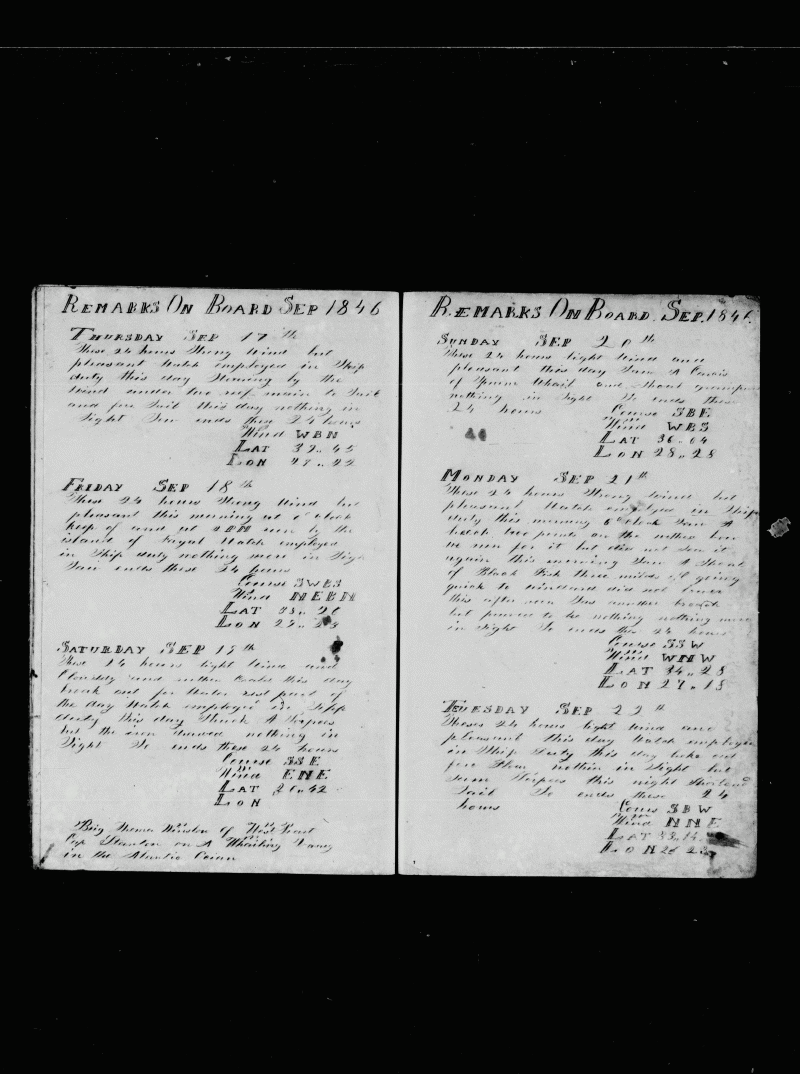 REMARKS ON BOARD SEP 1846
THURSDAY SEP 17th
These 24 hours Strong wind but
pleasant Watch employed in Ship
duty this day Stearing by the
wind under two reef main to Sail
and fore Sail this day nothing in
Sight So ends these 24 hours
Wind WBN
LAT
LON
FRIDAY SEP 18th
These 24 hours Strong wind but
pleasant this morning at 6 clock
keep of and at 2 PM run by the
island of Fayal Watch employed
in Ship duty nothing more in Sight
So ends these 24 hours
Course SWBS
Wind NEBN
LAT
LON
SATURDAY SEP 19th
These 24 hours light wind and
Cloudy and this day
break out for Water rest part of
the day Watch employed in Ship
duty this day Struck A Porpoise
but the iron drawed nothing in
Sight So ends these 24 hours
Course SSE
Wind ENE
LAT
LON
Brig of West Port
Cap Stanton on A Whaling
in the Atlantic Ocean
REMARKS ON BOARD SEP. 1846
SUNDAY SEP 20th
These 24 hours light wind and
pleasant this day Saw A
of and Shoal
nothing in Sight So ends these
24 hours Course SBE
Wind WBS
LAT 36.. 04
LON 28.. 28
MONDAY SEP 21th
These 24 hours Strong wind but
pleasant Watch employee in Ship
duty this morning 6 clock Saw A
two points on the bow
we run for it but did not See it
again this morning Saw A Shoal
of Black Fish three miles of going
quick to windard did not lower
this after noon Saw another
but proved to be nothing nothing more
in Sight So ends these 24 hours
Course SSW
Wind WNW
LAT 34.. 28
LON 27.. 18
TUESDAY SEP 22th
Theses 24 hours light wind and
pleasant this day Watch employee
in Ship Duty this day
nothin in Sight but
Some Porpoes this night Shortend
Sail So ends these 24
hours Cours SBW
Wind NNE
LAT 33.. 14
LON